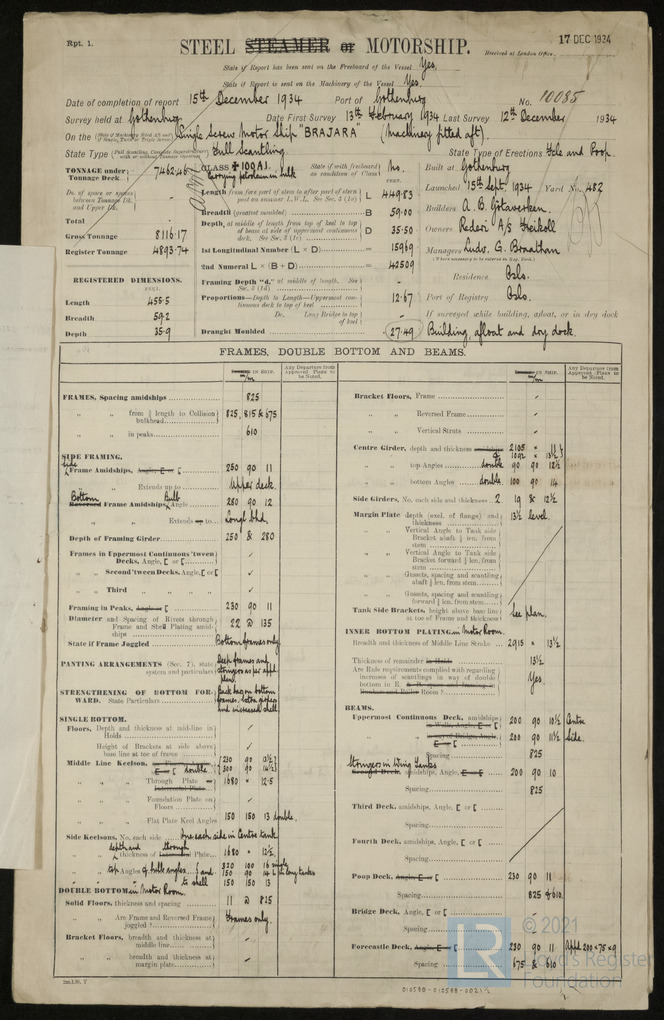 Rpt. 1.
17 DEC 1934
STEEL STEAMER or MOTORSHIP.
Received at London Office
State if Report has been sent on the Freeboard of the Vessel Yes.
State if Report is sent on the Machinery of the Vessel Yes.
Date of completion of report 15th December 1934 Port of Gothenburg No. 10085
Survey held at Gothenburg Date First Survey 13th February 1934 Last Survey 12th December 1934
On the Single Screw Motor Ship "BRAJARA" (Machinery fitted aft).
State Type Full Scantling State Type of Erections Fcle and Poop.
TONNAGE under Tonnage Deck 7462.46
CLASS + 100 A1. Carrying petroleum in bulk
State if with freeboard as condition of Class No.
Built at Gothenburg
Launched 15th Sept. 1934 Yard No. 482
Builders A. B. Götaverken.
Owners Rederi A/S
Managers Ludv. G. Braathen
Residence Oslo.
Port of Registry Oslo.
If surveyed while building, afloat, or in dry dock
Building, afloat and dry dock.
Do. of space or spaces between Tonnage Dk. and Upper Dk. -
Total -
Gross Tonnage 8116.17
Register Tonnage 4893.74
REGISTERED DIMENSIONS.
FEET.
Length 455.5
Breadth 59.2
Depth 35.9
Length from fore part of stem to after part of stern post on summer L.W.L. See Sec. 3 (1a) L 449.83
Breadth (greatest moulded) B 59.00
Depth, at middle of length from top of keel to top of beam at side of uppermost continuous deck. See Sec. 3 (1c) D 35.50
1st Longitudinal Number (L × D) = 15969
2nd Numeral L × (B + D) = 42509
Framing Depth "d," at middle of length. See Sec. 3 (1d) -
Proportions—Depth to Length—Uppermost continuous deck to top of keel 12.67
Do. Long Bridge to top of keel -
Draught Moulded 27.49
FRAMES, DOUBLE BOTTOM AND BEAMS.
IN SHIP.
Any Departure from Approved Plans to be Noted.
IN SHIP.
Any Departure from Approved Plans to be Noted.
FRAMES, Spacing amidships 825
" " from ⅕ length to Collision bulkhead 825, 815 & 675
" " in peaks 610
SIDE FRAMING.
Side Frame Amidships, Angle, E or [ 250 90 11
" " Extends up to Upper deck.
Bottom Reversed Frame Amidships, Bulb Angle 280 90 12
" " Extends up to Longl bhd.
Depth of Framing Girder 250 & 280
Frames in Uppermost Continuous 'tween Decks, Angle, [ or [ ✓
" " Second 'tween Decks, Angle, [ or [ ✓
" " Third " " ✓
Framing in Peaks, Angle or [ 230 90 11
Diameter and Spacing of Rivets through Frame and Shell Plating amidships 22 @ 135
State if Frame Joggled Bottom frames only
PANTING ARRANGEMENTS (Sec. 7), state system and particulars Deep frames and stringers as per appd plan.
STRENGTHENING OF BOTTOM FORWARD. State Particulars
and increased shell
SINGLE BOTTOM.
Floors, Depth and thickness at mid-line in Holds ✓
Height of Brackets at side above base line at toe of frame ✓
Middle Line Keelson, double 230 90 13½
300 90 14½
" " Through Plate 1680 × 12.5
" " Foundation Plate on Floors ✓
" " Flat Plate Keel Angles 150 150 13 double.
Side Keelsons, No. each side One each side in Centre tank
" depth and thickness of through Plate 1680 × 12½
" top Angles of bulb angles and to shell 320 100 16 single
150 90 14
150 150 13
DOUBLE BOTTOM in Motor Room.
Solid Floors, thickness and spacing 11 @ 825
" " Are Frame and Reversed Frame joggled? Frames only.
Bracket Floors, breadth and thickness at middle line ✓
" " breadth and thickness at margin plate ✓
Bracket Floors, Frame ✓
" " Reversed Frame ✓
" " Vertical Struts ✓
Centre Girder, depth and thickness amidships 2105 × 11½
& 1092 × 13½
" " top Angles double 90 90 12½
" " bottom Angles double 100 90 14
Side Girders, No. each side and thickness 2 19 & 12½
Margin Plate depth (excl. of flange) and thickness 13½ level.
" " Vertical Angle to Tank side Bracket abaft ⅕ len. from stem
" " Vertical Angle to Tank side Bracket forward ⅕ len. from stem
" " Gussets, spacing and scantling abaft ⅕ len. from stem
" " Gussets, spacing and scantling forward ⅕ len. from stem
Tank Side Brackets, height above base line at toe of Frame and thickness See plan.
INNER BOTTOM PLATING in Motor Room.
Breadth and thickness of Middle Line Strake 2915 × 13½
Thickness of remainder in Holds 13½
Are Rule requirements complied with regarding increases of scantlings in way of double bottom in E. Room? Yes.
BEAMS.
Uppermost Continuous Deck, amidships 200 90 10½ Centre
200 90 11½ Side.
Spacing 825
Stringers in Wing Tanks
Second Deck, amidships, Angle, E or [ 200 90 10
Spacing 825
Third Deck, amidships, Angle, [ or [
Spacing
Fourth Deck, amidships, Angle, [ or [
Spacing
Poop Deck, Angle, E or [ 230 90 11
Spacing 825 & 610
Bridge Deck, Angle, [ or [
Spacing
Forecastle Deck, Angle, E or [ 230 90 11 Appd 200×75×9
Spacing 675 & 610
© 2021
Lloyd's Register
Foundation
010588-010598-0021½